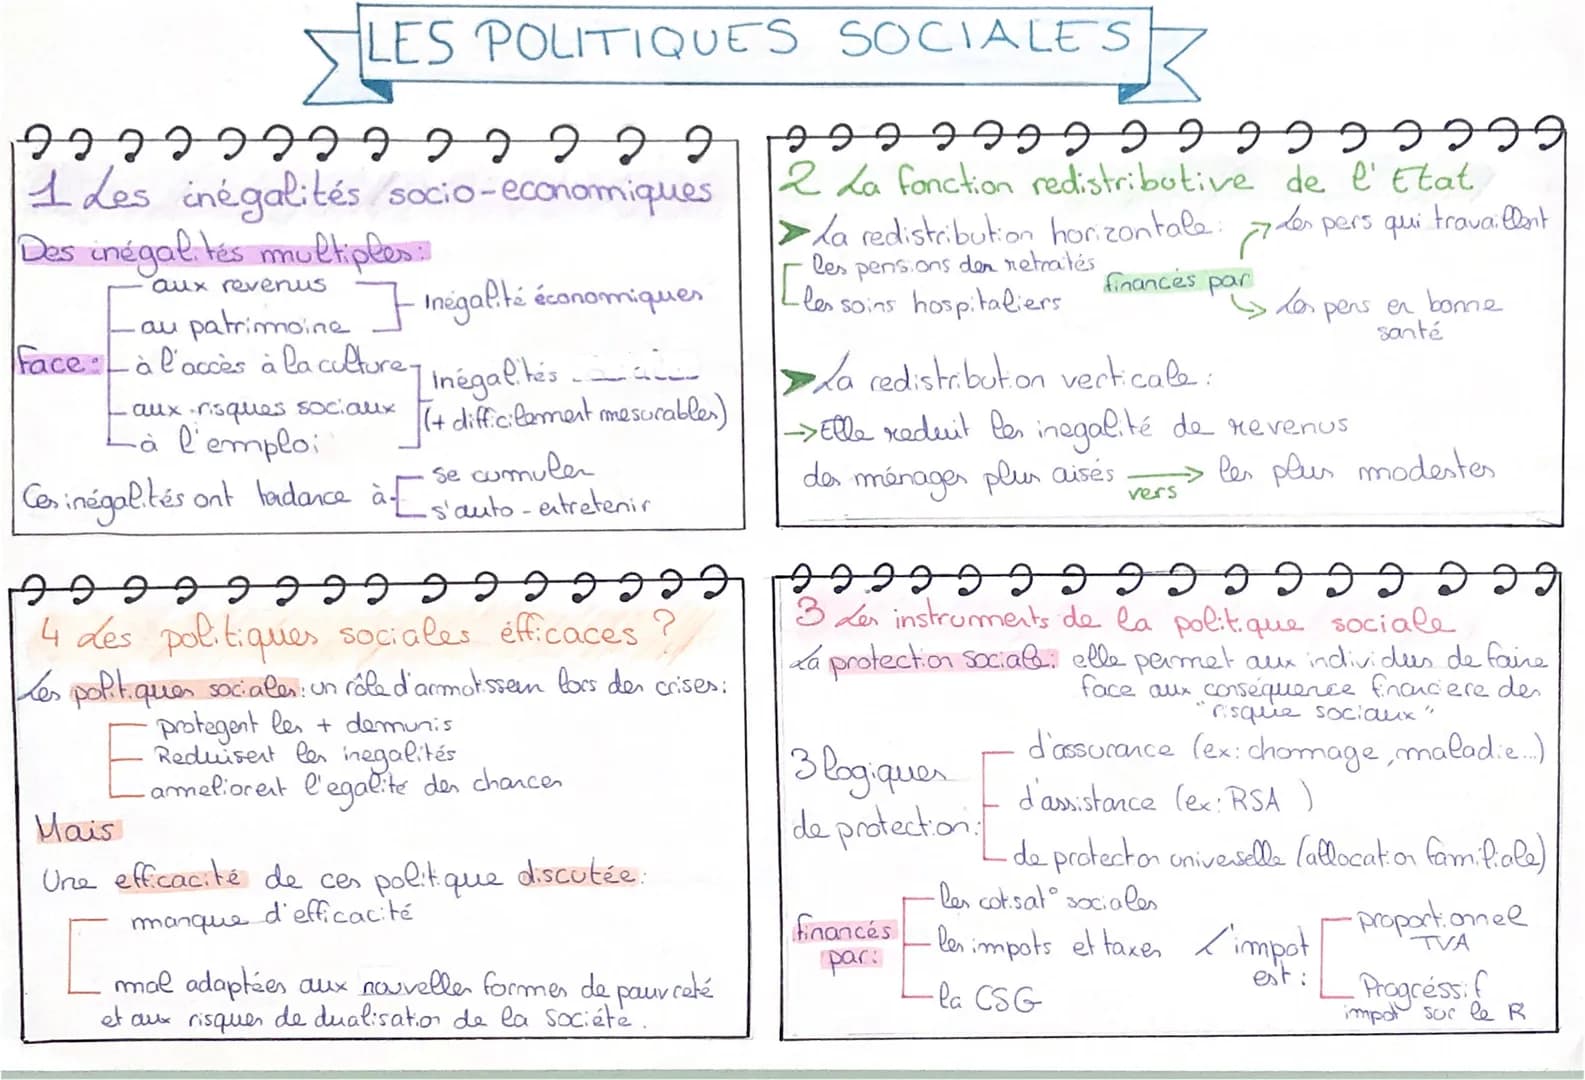 LES POLITIQUES SOCIALES
1 Les inégalités socio-economiques
Des inégalités multiples:
Face:
aux revenus
au patrimoine
Inégalité économiques
à l'accès à la culture
aux risques sociaux
à l'emploi
Inégalités
(+ difficilement mesurables)
Ces inégalités ont tendance à
se cumuler
s'auto-entretenir
2 La fonction redistributive de l'Etat
La redistribution horizontale:
les pensions des retraités
les soins hospitaliers
financés par
les pers qui travaillent
les pers en bonne
santé
La redistribution verticale:
→ Elle reduit les inegalité de revenus
des ménages plus aisés → les plus modestes
vers
3 Les instruments de la politique sociale
La protection sociale: elle permet aux individus de faire
face aux conséquence financiere des
"risque sociaux"
3 logiques
de protection:
d'assurance (ex: chomage, maladie...)
d'assistance (ex: RSA )
de protection universelle (allocation familiale)
financés
par:
les cotisat° sociales
les impots et taxes
la CSG
L'impot
est:
proportionnel
TVA
Progréssif
impot sur le R
4 des politiques sociales éfficaces ?
Les politiques sociales: un rôle d'armotisseur lors des crises:
protegent les + demunis
Reduisent les inegalités
ameliorent l'egalité des chances
Mais
Une efficacité de ces politique discutée:
manque d'efficacité
mal adaptées aux nouvelles formes de pauvreté
et aux risques de dualisation de la Société.